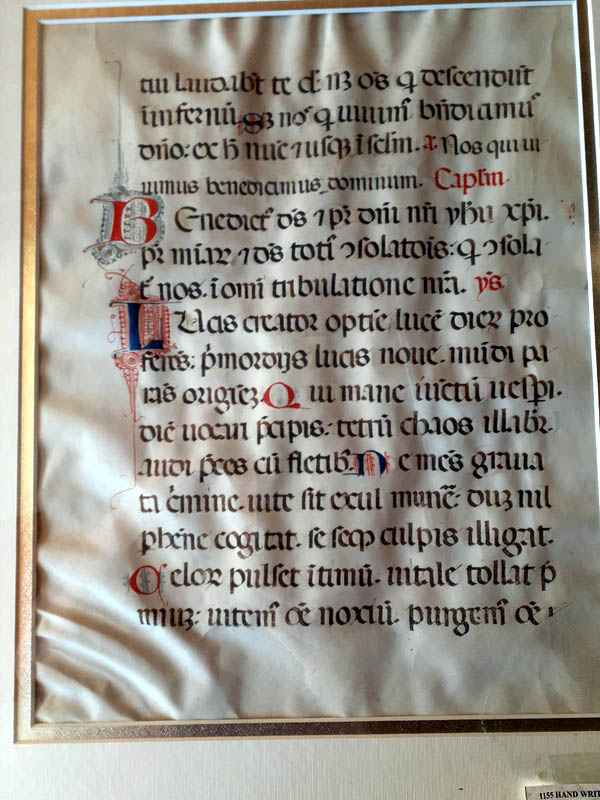 tui laudabūt te dn̄e nꝫ oēs q̄ descendūt
ī infernū. Sꝫ nos q̄ uiuim᷒ bn̄dicamus
dn̄o: ex h̄ nūc ⁊ usqꝫ ī sclm̄. a. Nos qui ui
uimus benedicamus dominum. Caplm̄
Benedict᷒ ds̄ ⁊ pr̄ dn̄i nr̄i yhū xp̄i.
pr̄ mīar̄ ⁊ ds̄ totī ↄsolatōis: q̄ ↄsola
t᷒ nos. ī omī tribulatione nr̄a. ys̄
Lucis creator optīe, lucē dier̄ pro
ferēs: p̄mordijs lucis noue. mūdi pa
rās origīeꝫ. Qui mane iūctū uesp̄i.
diē uocari p̄cipis: tetrū chaos illabit̄.
audi p̄ces cū fletibꝫ. Ne mēs graua
ta c̄mine. uite sit exul mun̄e: duꝫ nil
phēne cogitat. se seqꝫ culpis illigat.
Celor̄ pulset ītimū. uitale tollat p̄
miuꝫ: uitem᷒ oē noxiū. purgem᷒ oē
1155 HAND WRIT